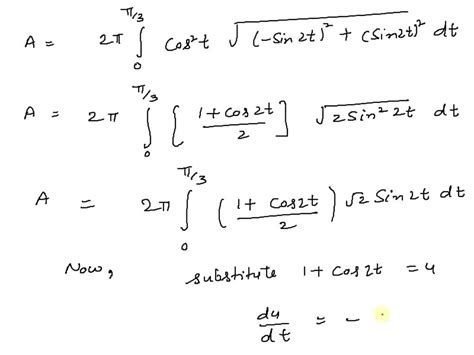 A = 2π ∫₀^{π/3} Cos²t √((-Sin 2t)² + (Sin2t)²) dt
A = 2π ∫₀^{π/3} [ (1+cos2t)/2 ] √(2Sin² 2t) dt
A = 2π ∫₀^{π/3} ( (1+ Cos2t)/2 ) √2 Sin2t dt
Now, substitute 1+ Cos2t = u
du/dt = -